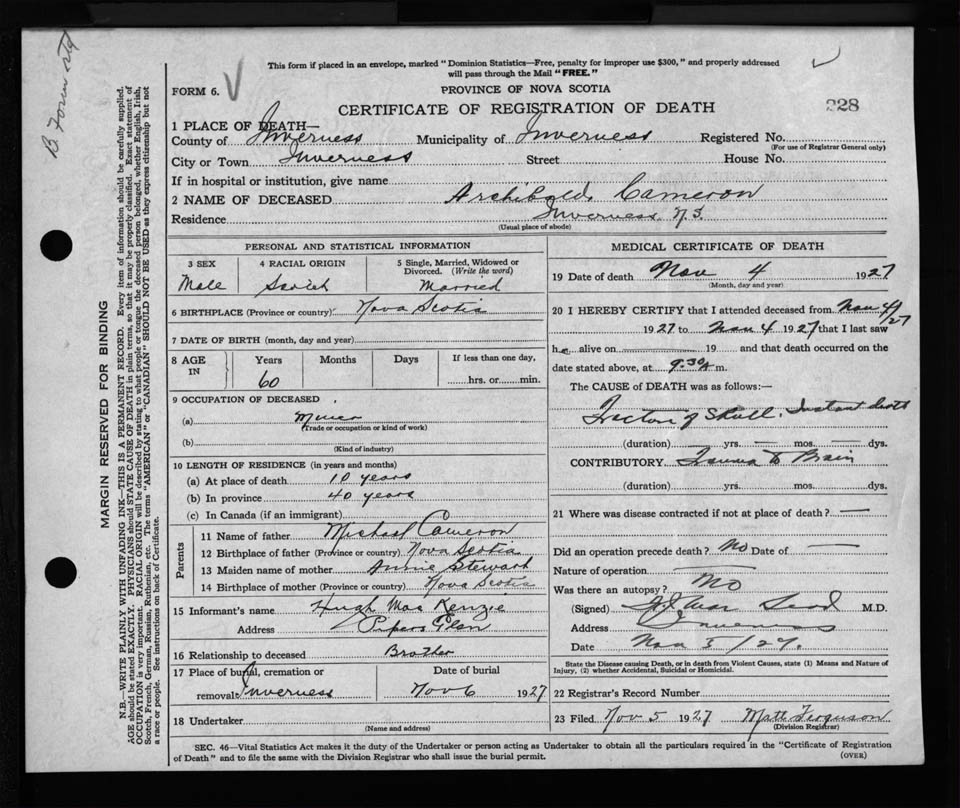 B Form ord
This form if placed in an envelope, marked "Dominion Statistics—Free, penalty for improper use $300," and properly addressed
will pass through the Mail "FREE."
FORM 6.
PROVINCE OF NOVA SCOTIA
CERTIFICATE OF REGISTRATION OF DEATH
328
1 PLACE OF DEATH—
County of Inverness Municipality of Inverness Registered No.
(For use of Registrar General only)
City or Town Inverness Street House No.
If in hospital or institution, give name
2 NAME OF DECEASED Archibald Cameron
Residence Inverness N.S.
(Usual place of abode)
MARGIN RESERVED FOR BINDING
N.B.—WRITE PLAINLY WITH UNFADING INK—THIS IS A PERMANENT RECORD. Every item of information should be carefully supplied.
AGE should be stated EXACTLY. PHYSICIANS should STATE CAUSE OF DEATH in plain terms, so that it may be properly classified. Exact statement of
OCCUPATION is very important. RACIAL ORIGIN will be described by stating to what people or tongue the deceased person belonged, whether English, Irish,
Scotch, French, German, Russian, Ruthenian, etc. The terms "AMERICAN" or "CANADIAN" SHOULD NOT BE USED as they express citizenship but not
a race or people. See instructions on back of Certificate.
PERSONAL AND STATISTICAL INFORMATION
3 SEX
Male
4 RACIAL ORIGIN
Scotch
5 Single, Married, Widowed or
Divorced. (Write the word)
Married
6 BIRTHPLACE (Province or country) Nova Scotia
7 DATE OF BIRTH (month, day and year)
8 AGE
IN
Years
60
Months
Days
If less than one day,
hrs. or min.
9 OCCUPATION OF DECEASED
(a) Miner
(Trade or occupation or kind of work)
(b)
(Kind of industry)
10 LENGTH OF RESIDENCE (in years and months)
(a) At place of death 10 years
(b) In province 40 years
(c) In Canada (if an immigrant)
Parents
11 Name of father Michael Cameron
12 Birthplace of father (Province or country) Nova Scotia
13 Maiden name of mother Annie Stewart
14 Birthplace of mother (Province or country) Nova Scotia
15 Informant's name Hugh MacKenzie
Address Pipers Glen
16 Relationship to deceased Brother
17 Place of burial, cremation or
removal Inverness
Date of burial
Nov 6 1927
18 Undertaker
(Name and address)
MEDICAL CERTIFICATE OF DEATH
19 Date of death Nov 4 1927
(Month, day and year)
20 I HEREBY CERTIFY that I attended deceased from Nov 4/27
1927 to Nov 4 1927 that I last saw
he alive on 19 and that death occurred on the
date stated above, at 9.30 m.
The CAUSE of DEATH was as follows:—
of Skull. Instant death
(duration) — yrs. — mos. — dys.
CONTRIBUTORY Trauma to Brain
(duration) yrs. mos. dys.
21 Where was disease contracted if not at place of death? —
Did an operation precede death? No Date of —
Nature of operation —
Was there an autopsy? No
(Signed) M.D.
Address Inverness
Date Nov 5/27.
State the Disease causing Death, or in death from Violent Causes, state (1) Means and Nature of
Injury, (2) whether Accidental, Suicidal or Homicidal.
22 Registrar's Record Number
23 Filed Nov 5 1927 Matt Ferguson
(Division Registrar)
SEC. 46—Vital Statistics Act makes it the duty of the Undertaker or person acting as Undertaker to obtain all the particulars required in the "Certificate of Registration
of Death" and to file the same with the Division Registrar who shall issue the burial permit.
(OVER)